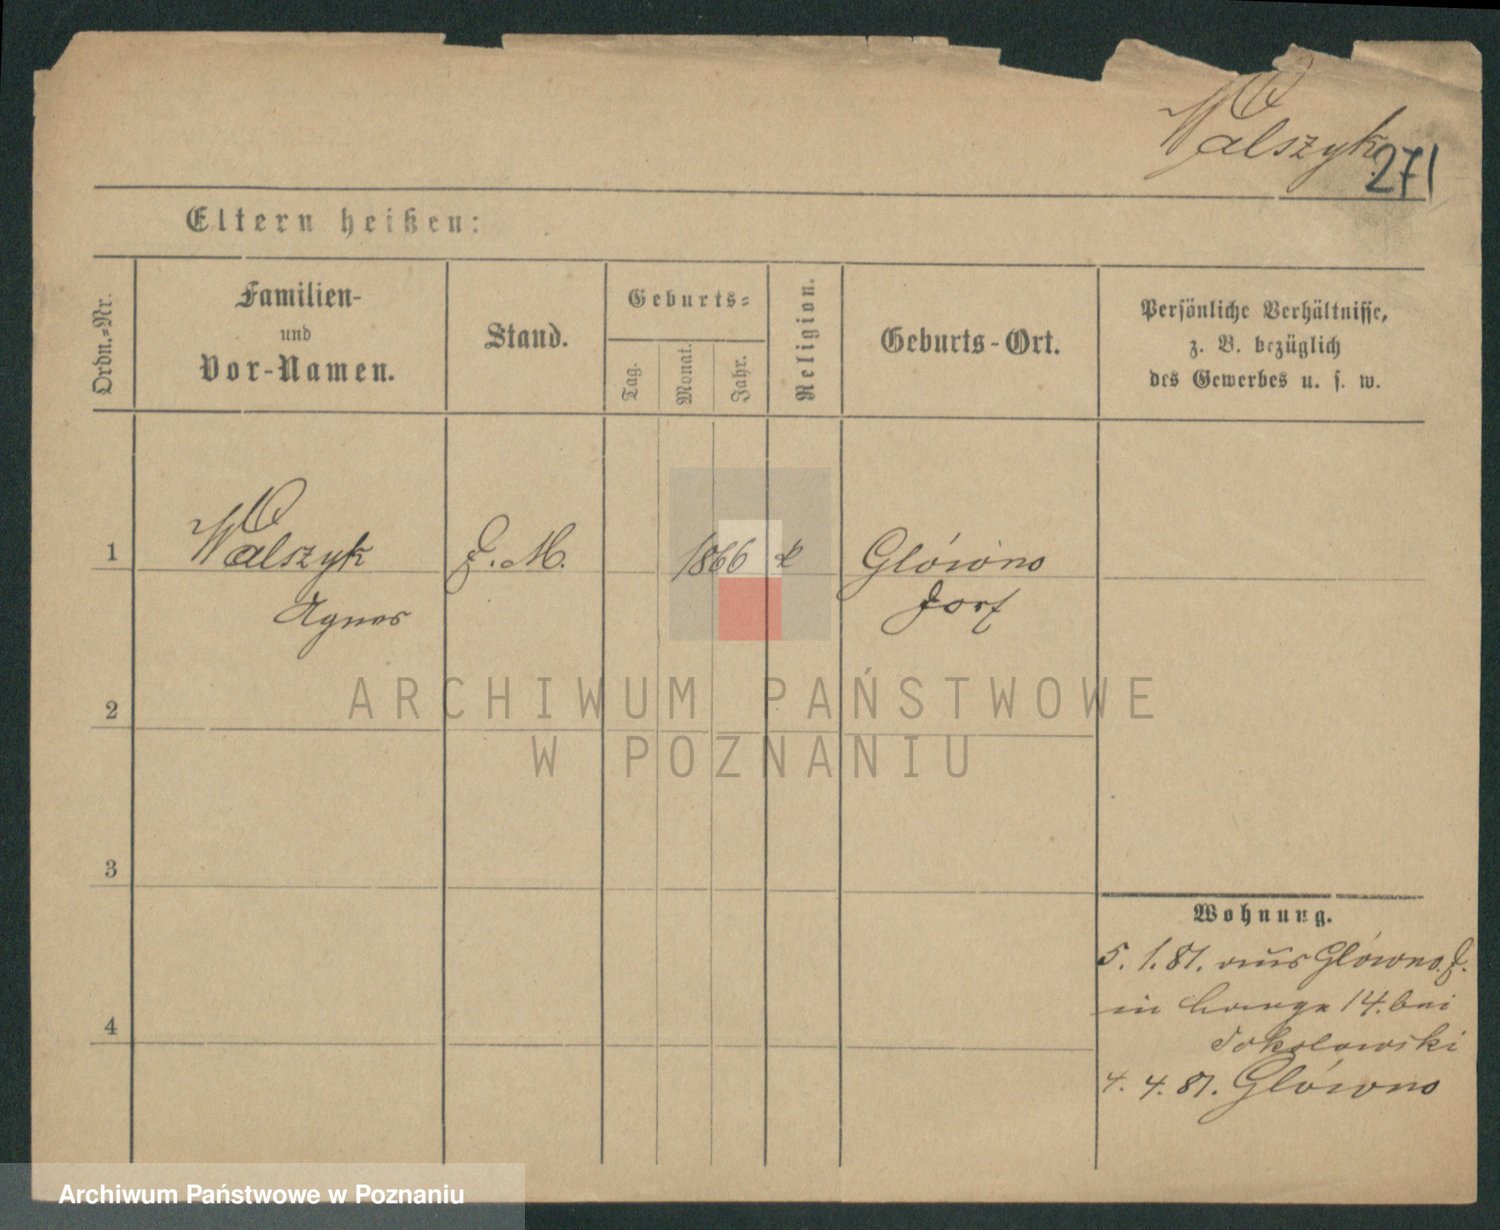 Walszyk
271
Eltern heißen:
Ordn.-Nr.
Familien-
und
Vor-Namen.
Stand.
Geburts-
Tag.
Monat.
Jahr.
Religion.
Geburts-Ort.
Persönliche Verhältnisse,
z. B. bezüglich
des Gewerbes u. s. w.
1
Walszyk
Agnes
D. M.
1866
k
Glówno
Dorf
2
3
4
Wohnung.
5. 1. 81. aus Glówno D.
in Lange 14. bei
Sokolowski
4. 4. 81. Glówno
ARCHIWUM PAŃSTWOWE
W POZNANIU
Archiwum Państwowe w Poznaniu